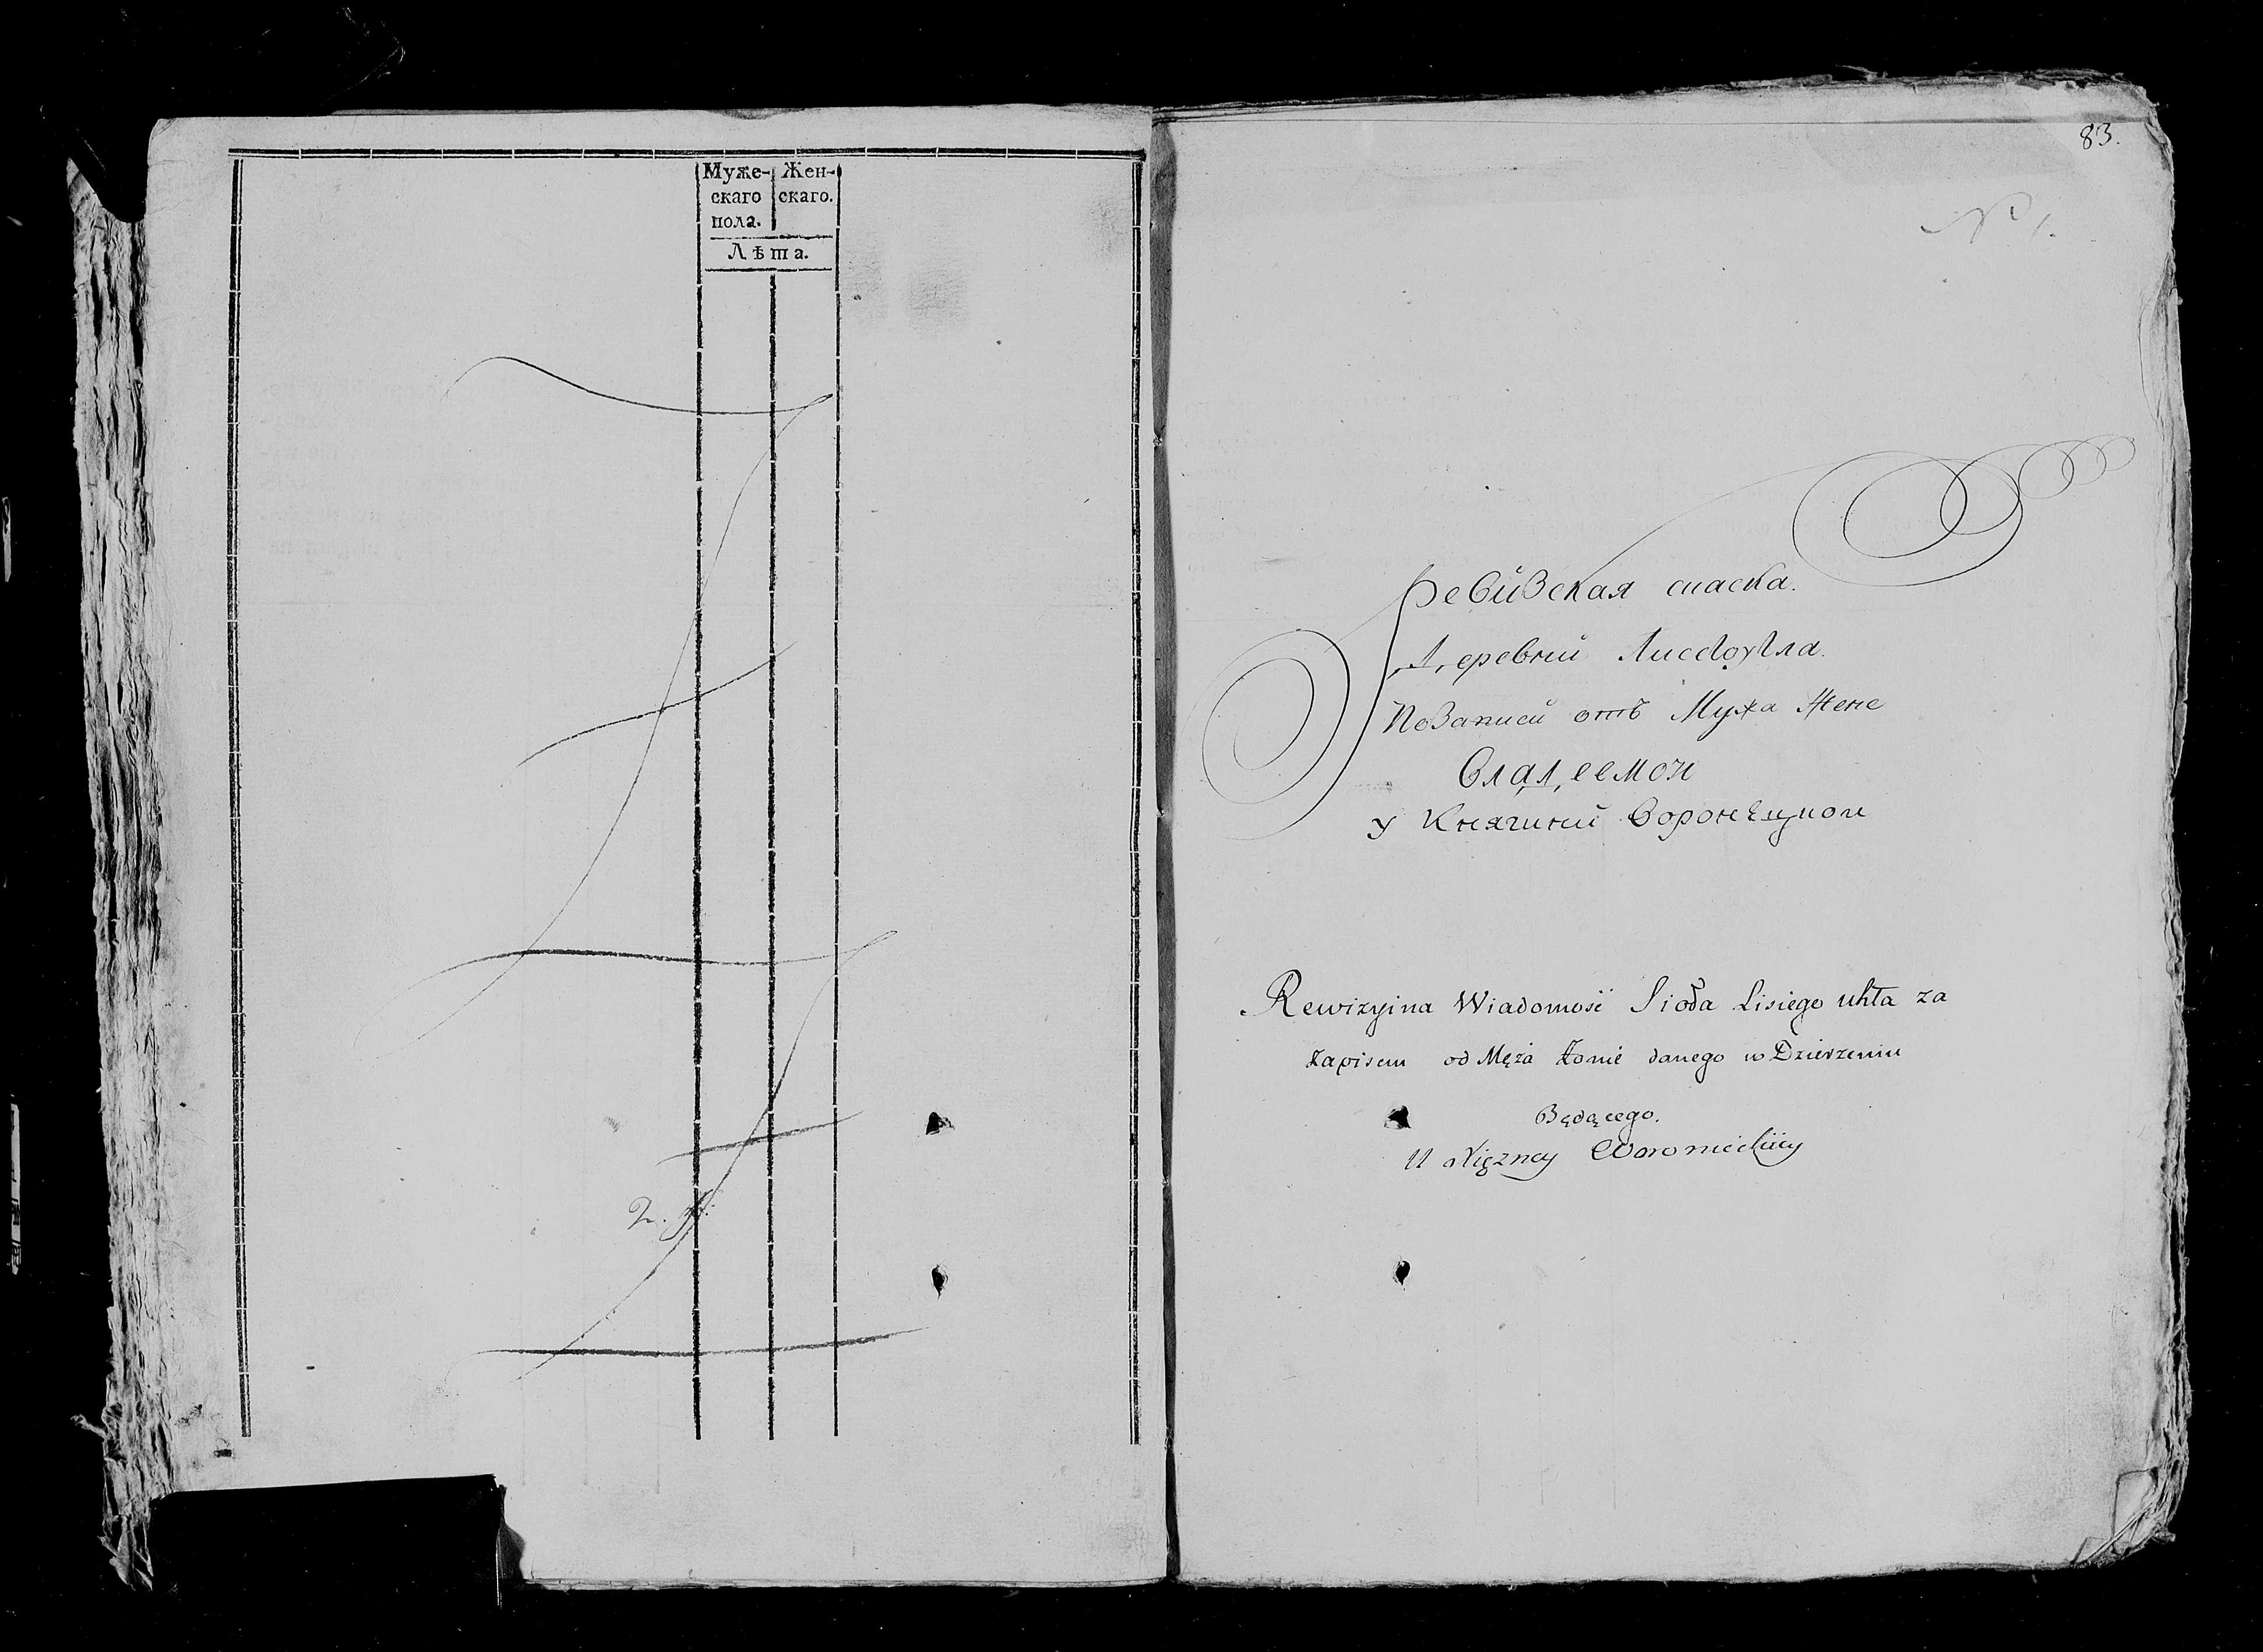 Муже- Жен-
скаго скаго.
пола.
Лѣта.
83.
№ 1.
Ревизская сказка.
Деревни
По записи отъ Мужа Жене
у Княгини Воронецкой
Rewizyina Wiadomość Sioła Lisiego uhła za
Zapisem od Męża Żonie danego w Dzierzeniu
Będącego.
U Xiężney Woronieckiey